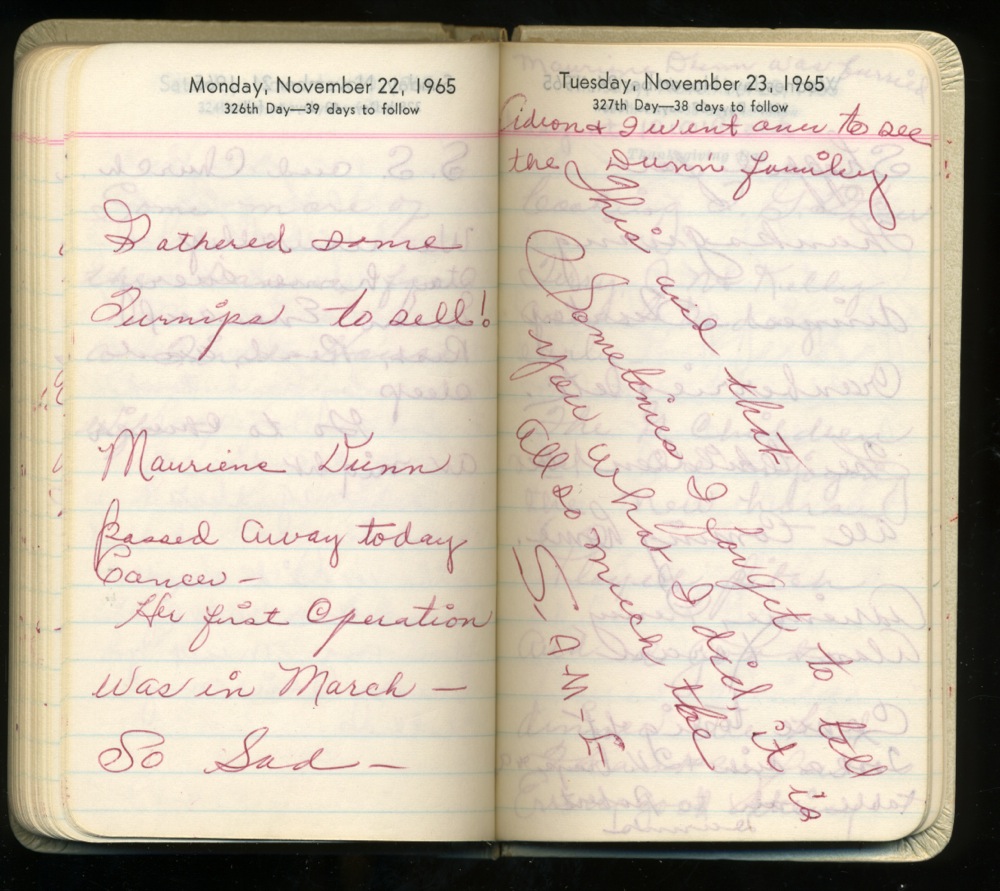 Monday, November 22, 1965
326th Day—39 days to follow
Gathered some
Turnips to sell!
Mauriene Dunn
passed away today
Cancer –
Her first Operation
was in March –
So Sad –
Tuesday, November 23, 1965
327th Day—38 days to follow
Mauriene Dunn was buried
Gideon & I went over to see
the Dunn family
This and that
Sometimes I forget to tell
you what I did, it is
all so much the
S-A-M-E